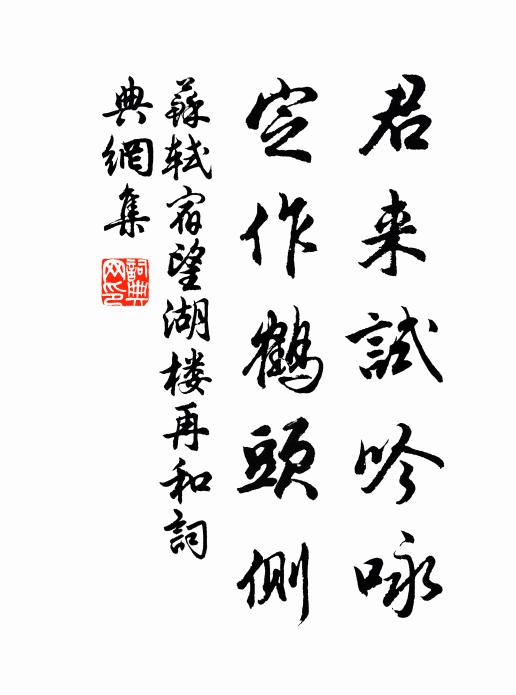 君来試吟咏
定作鶴頭側
蘇軾宿望湖楼再和詞
典網集
詞典网印